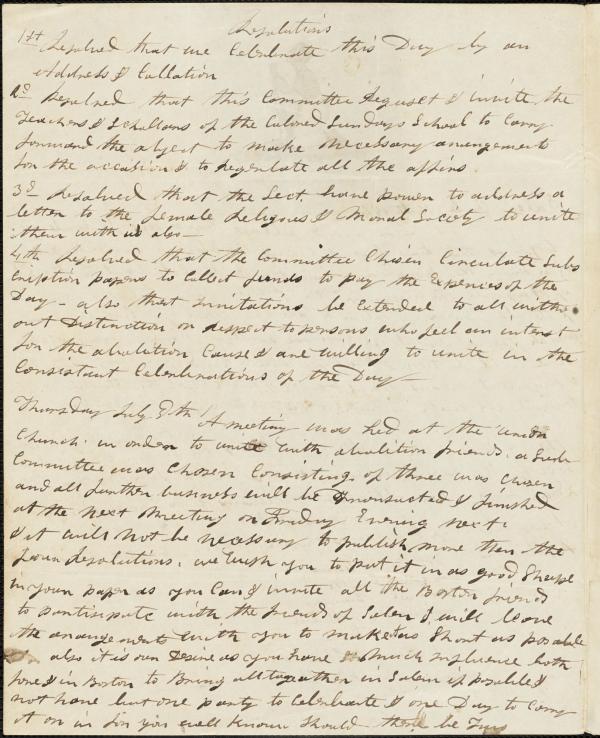 Resolutions
1st Resolved that we Celebrate this Day by an
Address & Collation
2d Resolved that this Committee Request & invite the
Teachers & Schollars of the Colored Sundays School to Carry
forward the object to make necessary arrangements
for the occasion & to regulate all the affirs.
3d Resolved that the Sect. have power to address a
letter to the female Religous & Moral Society to unite
them with us also—
4th Resolved that the Committee Chosen Circulate Subs
cription papers to Collect funds to pay the Expences of the
Day — also that invitations be Extended to all with
out Distinction or respect to persons who feel an interst
for the abolition Cause & are willing to unite in the
Consistant Celebrations of the Day—
Thursday July 8th A meeting was held at the Union
Church in order to unite with abolition friends. a
Committee was Chosen Consisting of three was Chosen
and all further business will be & finished
at the next Meeting on Evening next.
& it will not be necessary to publish more then the
four Resolutions. we wish you to put it in as good Shape
in your paper as you Can & invite all the Boston friends
to pantisipate with the friends of Salem & will leave
the arangements with you to make as Short as posable
also it is our Desire as you have much influence both
here & in Boston to Bring all together in Salem if posable &
not have but one party to Celebrate & one Day to Carry
it on in for you well know Should there be Two